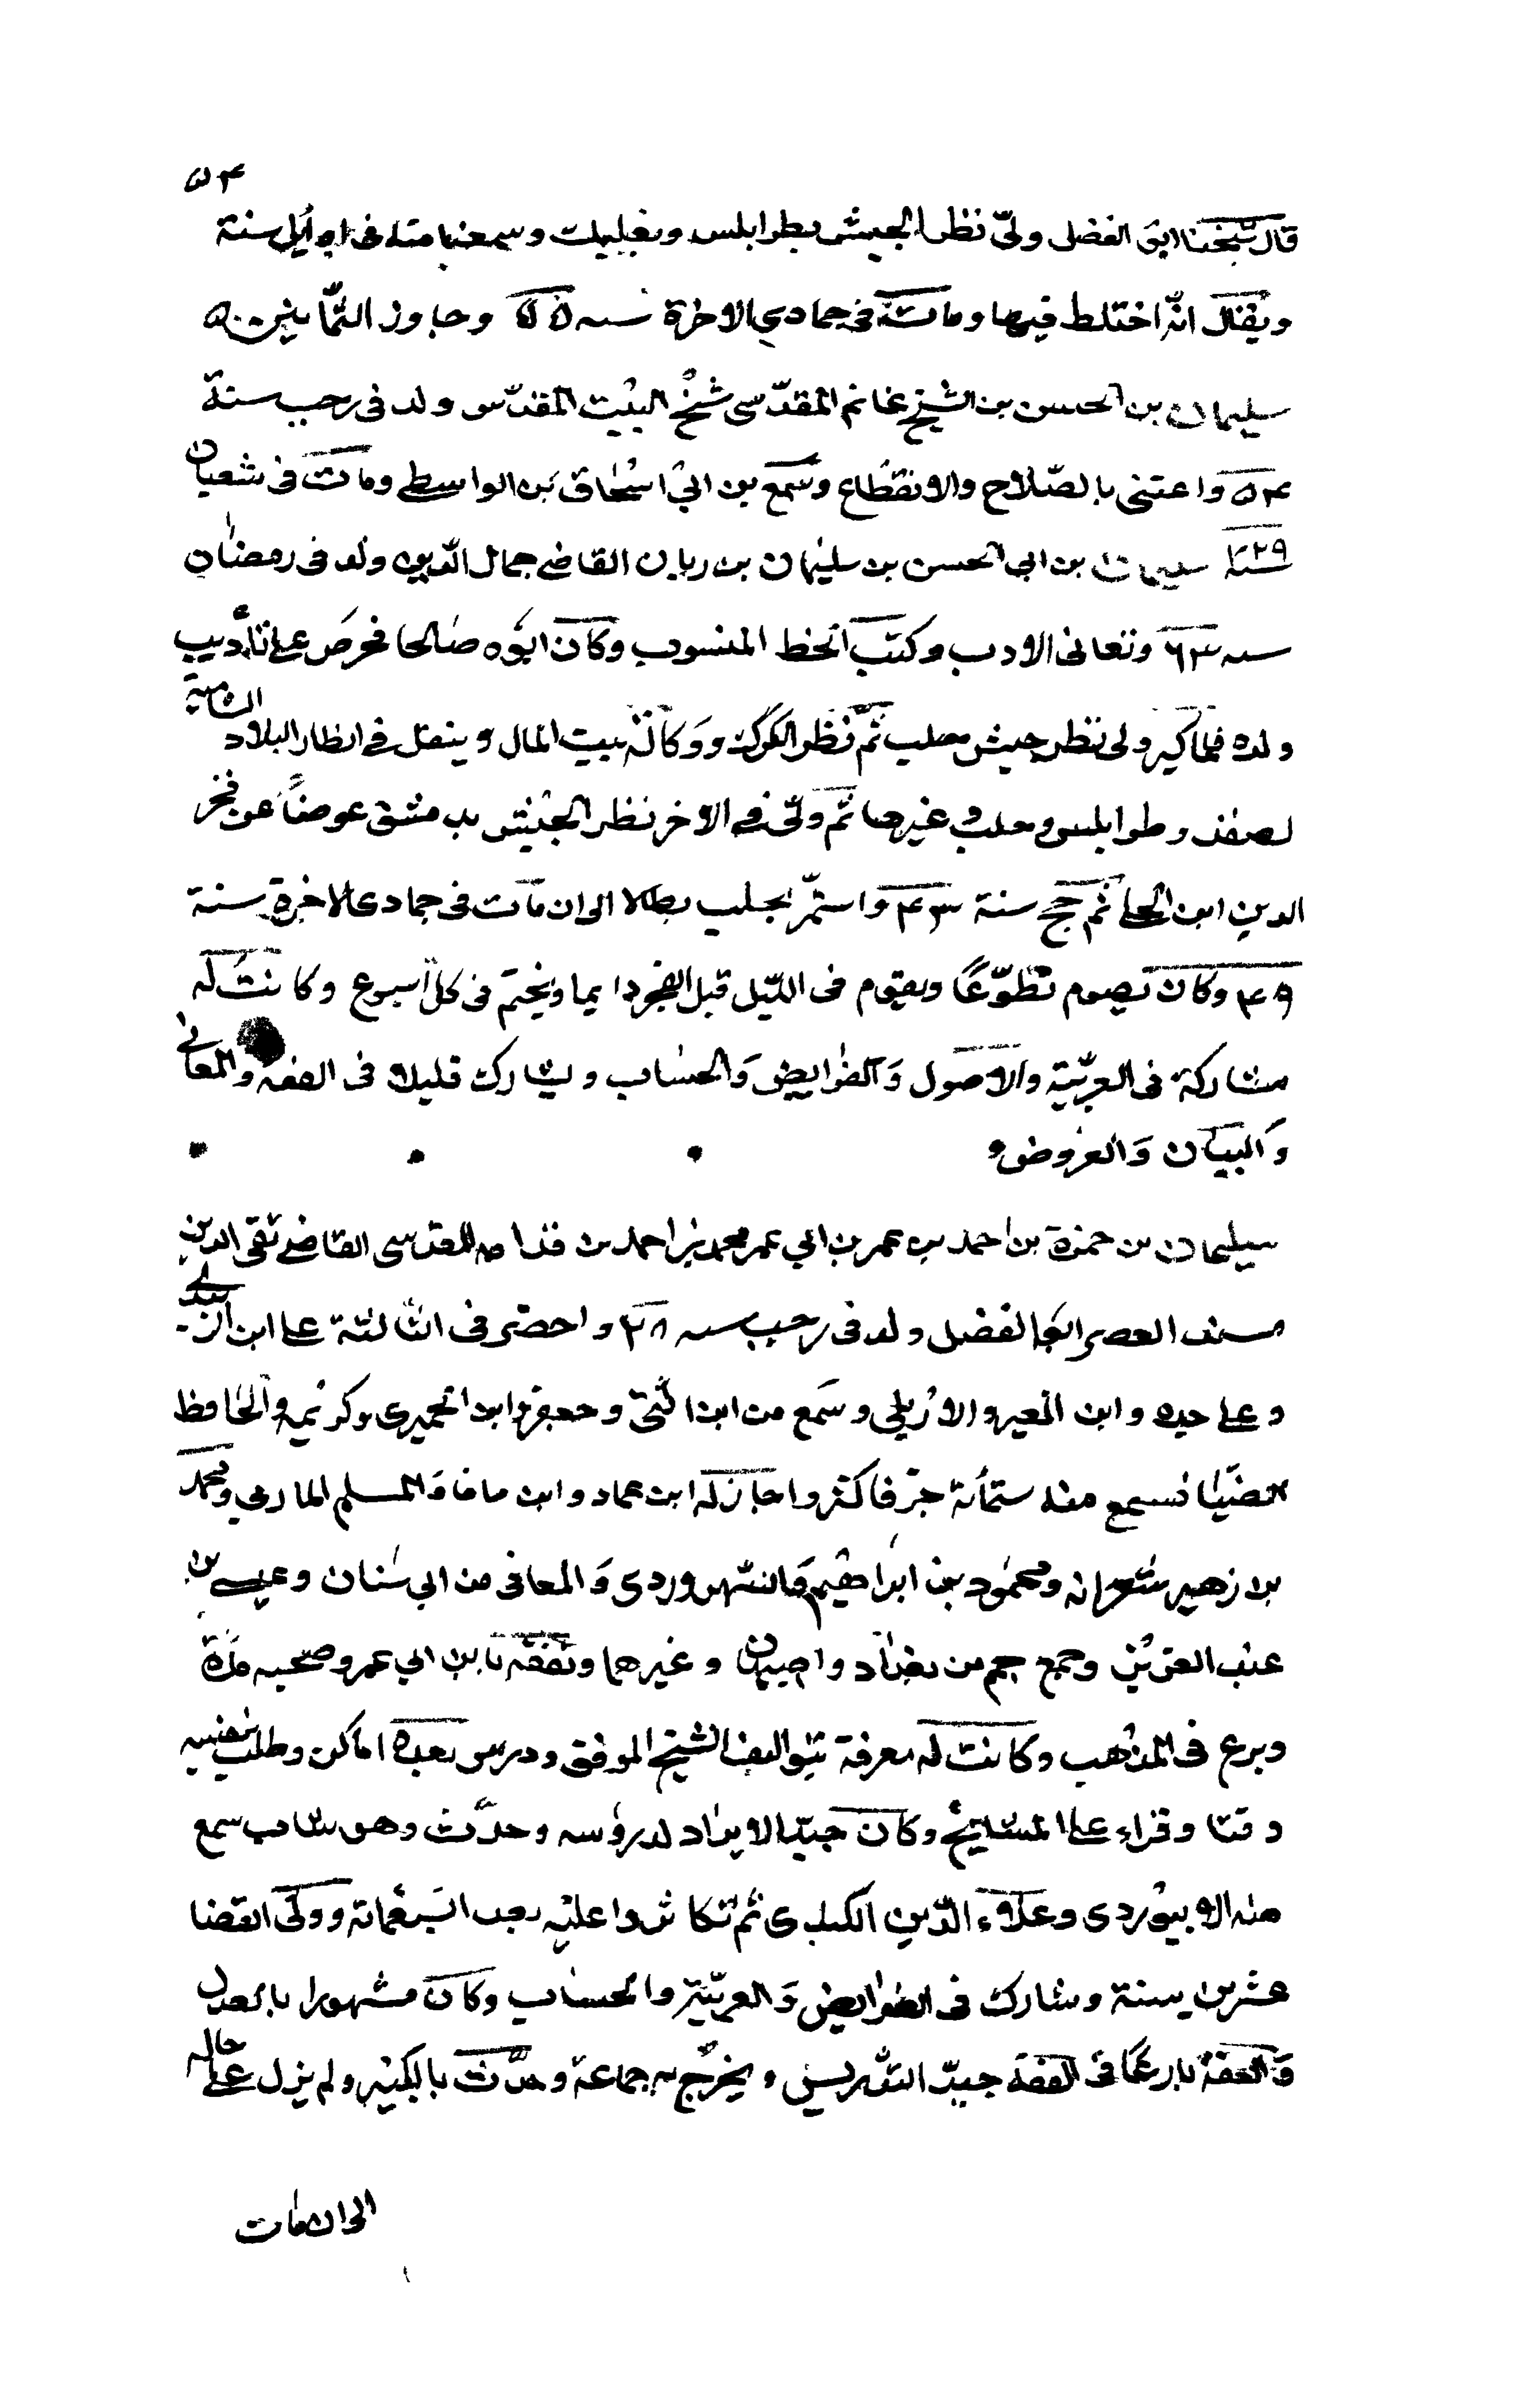 ٥٤
قال شيخنا ابو الفضل ولّى نظر الجيش بطرابلس وبعلبك وسمعنا منه فى اوايل سنة
ويقال انّه اختلط فيها ومات فى جمادي الاخرة سنه ٥٥ وجاوز الثمّانين
سليمان بن الحسن بن الشيخ غانم المقدّسى شيخ البيت المقدّس ولد فى رجب سنة
٥٤ واعتنى بالصّلاح والانقطاع وسمع بن ابى اسحاق بن الواسطى ومات فى شعبان
سنة ٧٢٩ سليمان بن ابى الحسن بن سليمان بن ريان القاضى جمال الدّين ولد فى رمضان
سنه ٦٣ وتعانى الادب وكتب الخط المنسوب وكان ابوه صالحا فحرص على تأديب
ولده فلما كبر ولى نظر جيش حلب ثمّ نظر الكرك ووكالة بيت المال وينقل فى انظار البلاد الشامية
لصفد وطرابلس وحلب وغيرها ثم ولّى فى الاخر نظر الجيش بدمشق عوضاً عن فخر
الدين ابن الحلى ثم حج سنة ٤٣ واستمّر بحلب بطالا الى ان مات فى جمادى الاخرة سنة
٤٩ وكان يصوم تطوّعاً ويقوم فى اللّيل قبل الفجر دايما ويختم فى كل اسبوع وكانت له
مشاركة فى العربيّة والاصول والفرايض والحساب ويشارك قليلا فى الفقه والمعانى
والبيان والعروض
سليمان بن حمزة بن احمد بن عمر بن ابى عمر محمد بن احمد بن قدامه المقدسى القاضى تقى الدين
مسند العصر ابو الفضل ولد فى رجب سنه ٢٨ واحضر فى الثالثة على ابن الزبيدى
وعلى جده وابن المقير والاربلى وسمع من ابن اللتى وجعفر وابن الجميزى وكريمه والحافظ
الضيا فسمع منه ستمأئة جزّ فاكثر واجاز له ابن عماد وابن باقا والمسلم المازنى ومحمد
بن زهير شعرانه ومحمود بن ابراهيم والسّهروردى والمعافى بن ابى سنان وعيسى بن
عبد العزيز وجمع جم من بغداد واصبهان وغيرهما وتفقه بابن ابى عمر وصحبه مدة
وبرع فى المذهب وكانت له معرفة بتواليف الشيخ الموفق ودرس بعدة اماكن وطلب بنفسه
وقتا وقراء على المشايخ وكان جيّد الايراد لدروسه وحدّث وهو شاب سمع
منه الابيوردى وعلاء الدّين الكندى ثم تكاثروا عليه بعد السبعمائة وولى القضا
عشرين سنة وشارك فى الفرايض والعربيّة والحساب وكان مشهورا بالعدل
والعفة بارعا فى الفقه جيدّ التدريس ، يخرّج به جماعة وحدّث بالكثير ولم يزل على حاله
الى ان مات